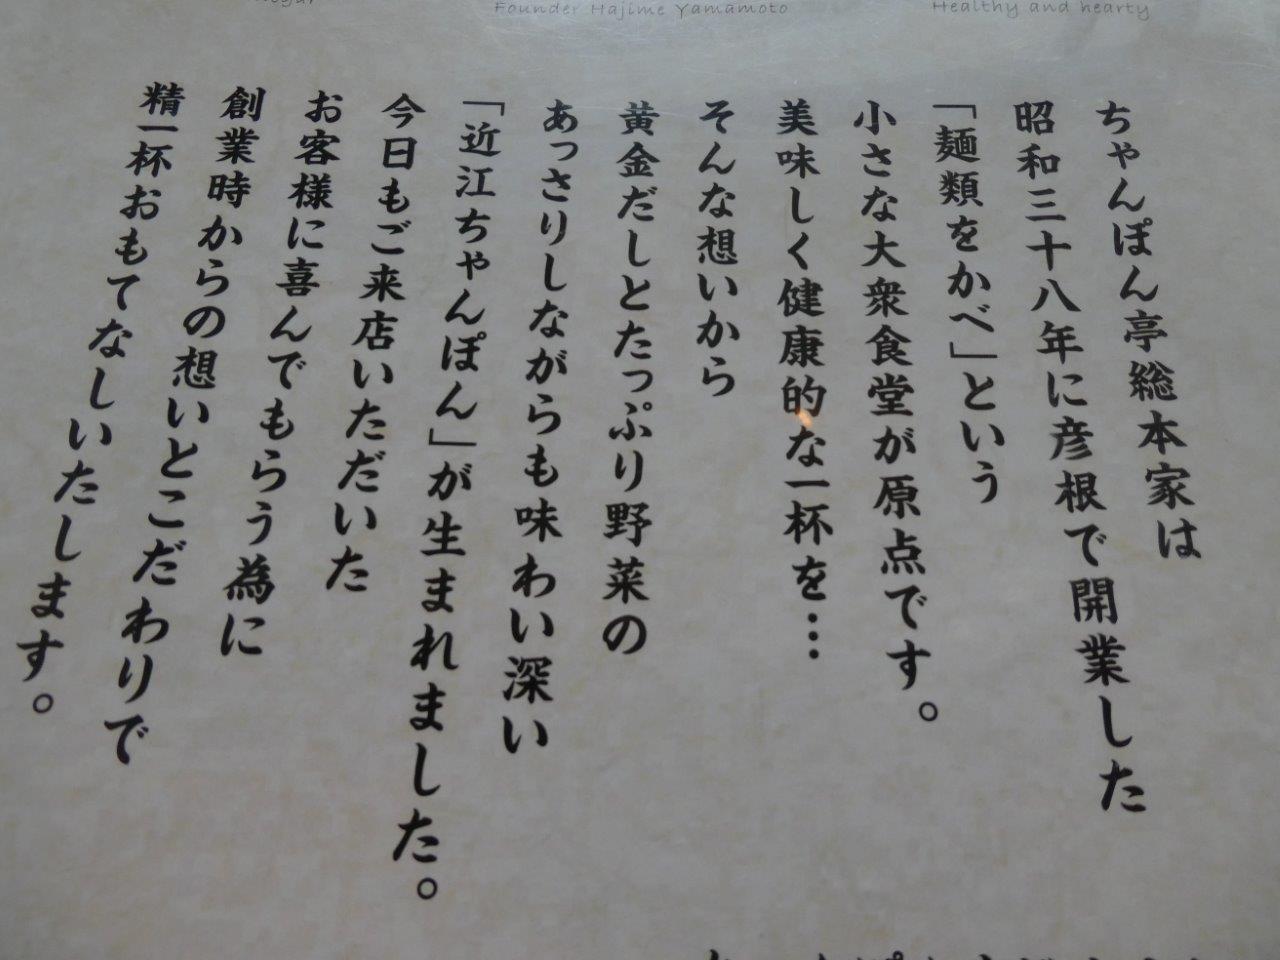 Founder Hajime Yamamoto
Healthy and hearty
ちゃんぽん亭総本家は
昭和三十八年に彦根で開業した
「麺類をかべ」という
小さな大衆食堂が原点です。
美味しく健康的な一杯を…
そんな想いから
黄金だしとたっぷり野菜の
あっさりしながらも味わい深い
「近江ちゃんぽん」が生まれました。
今日もご来店いただいた
お客様に喜んでもらう為に
創業時からの想いとこだわりで
精一杯おもてなしいたします。